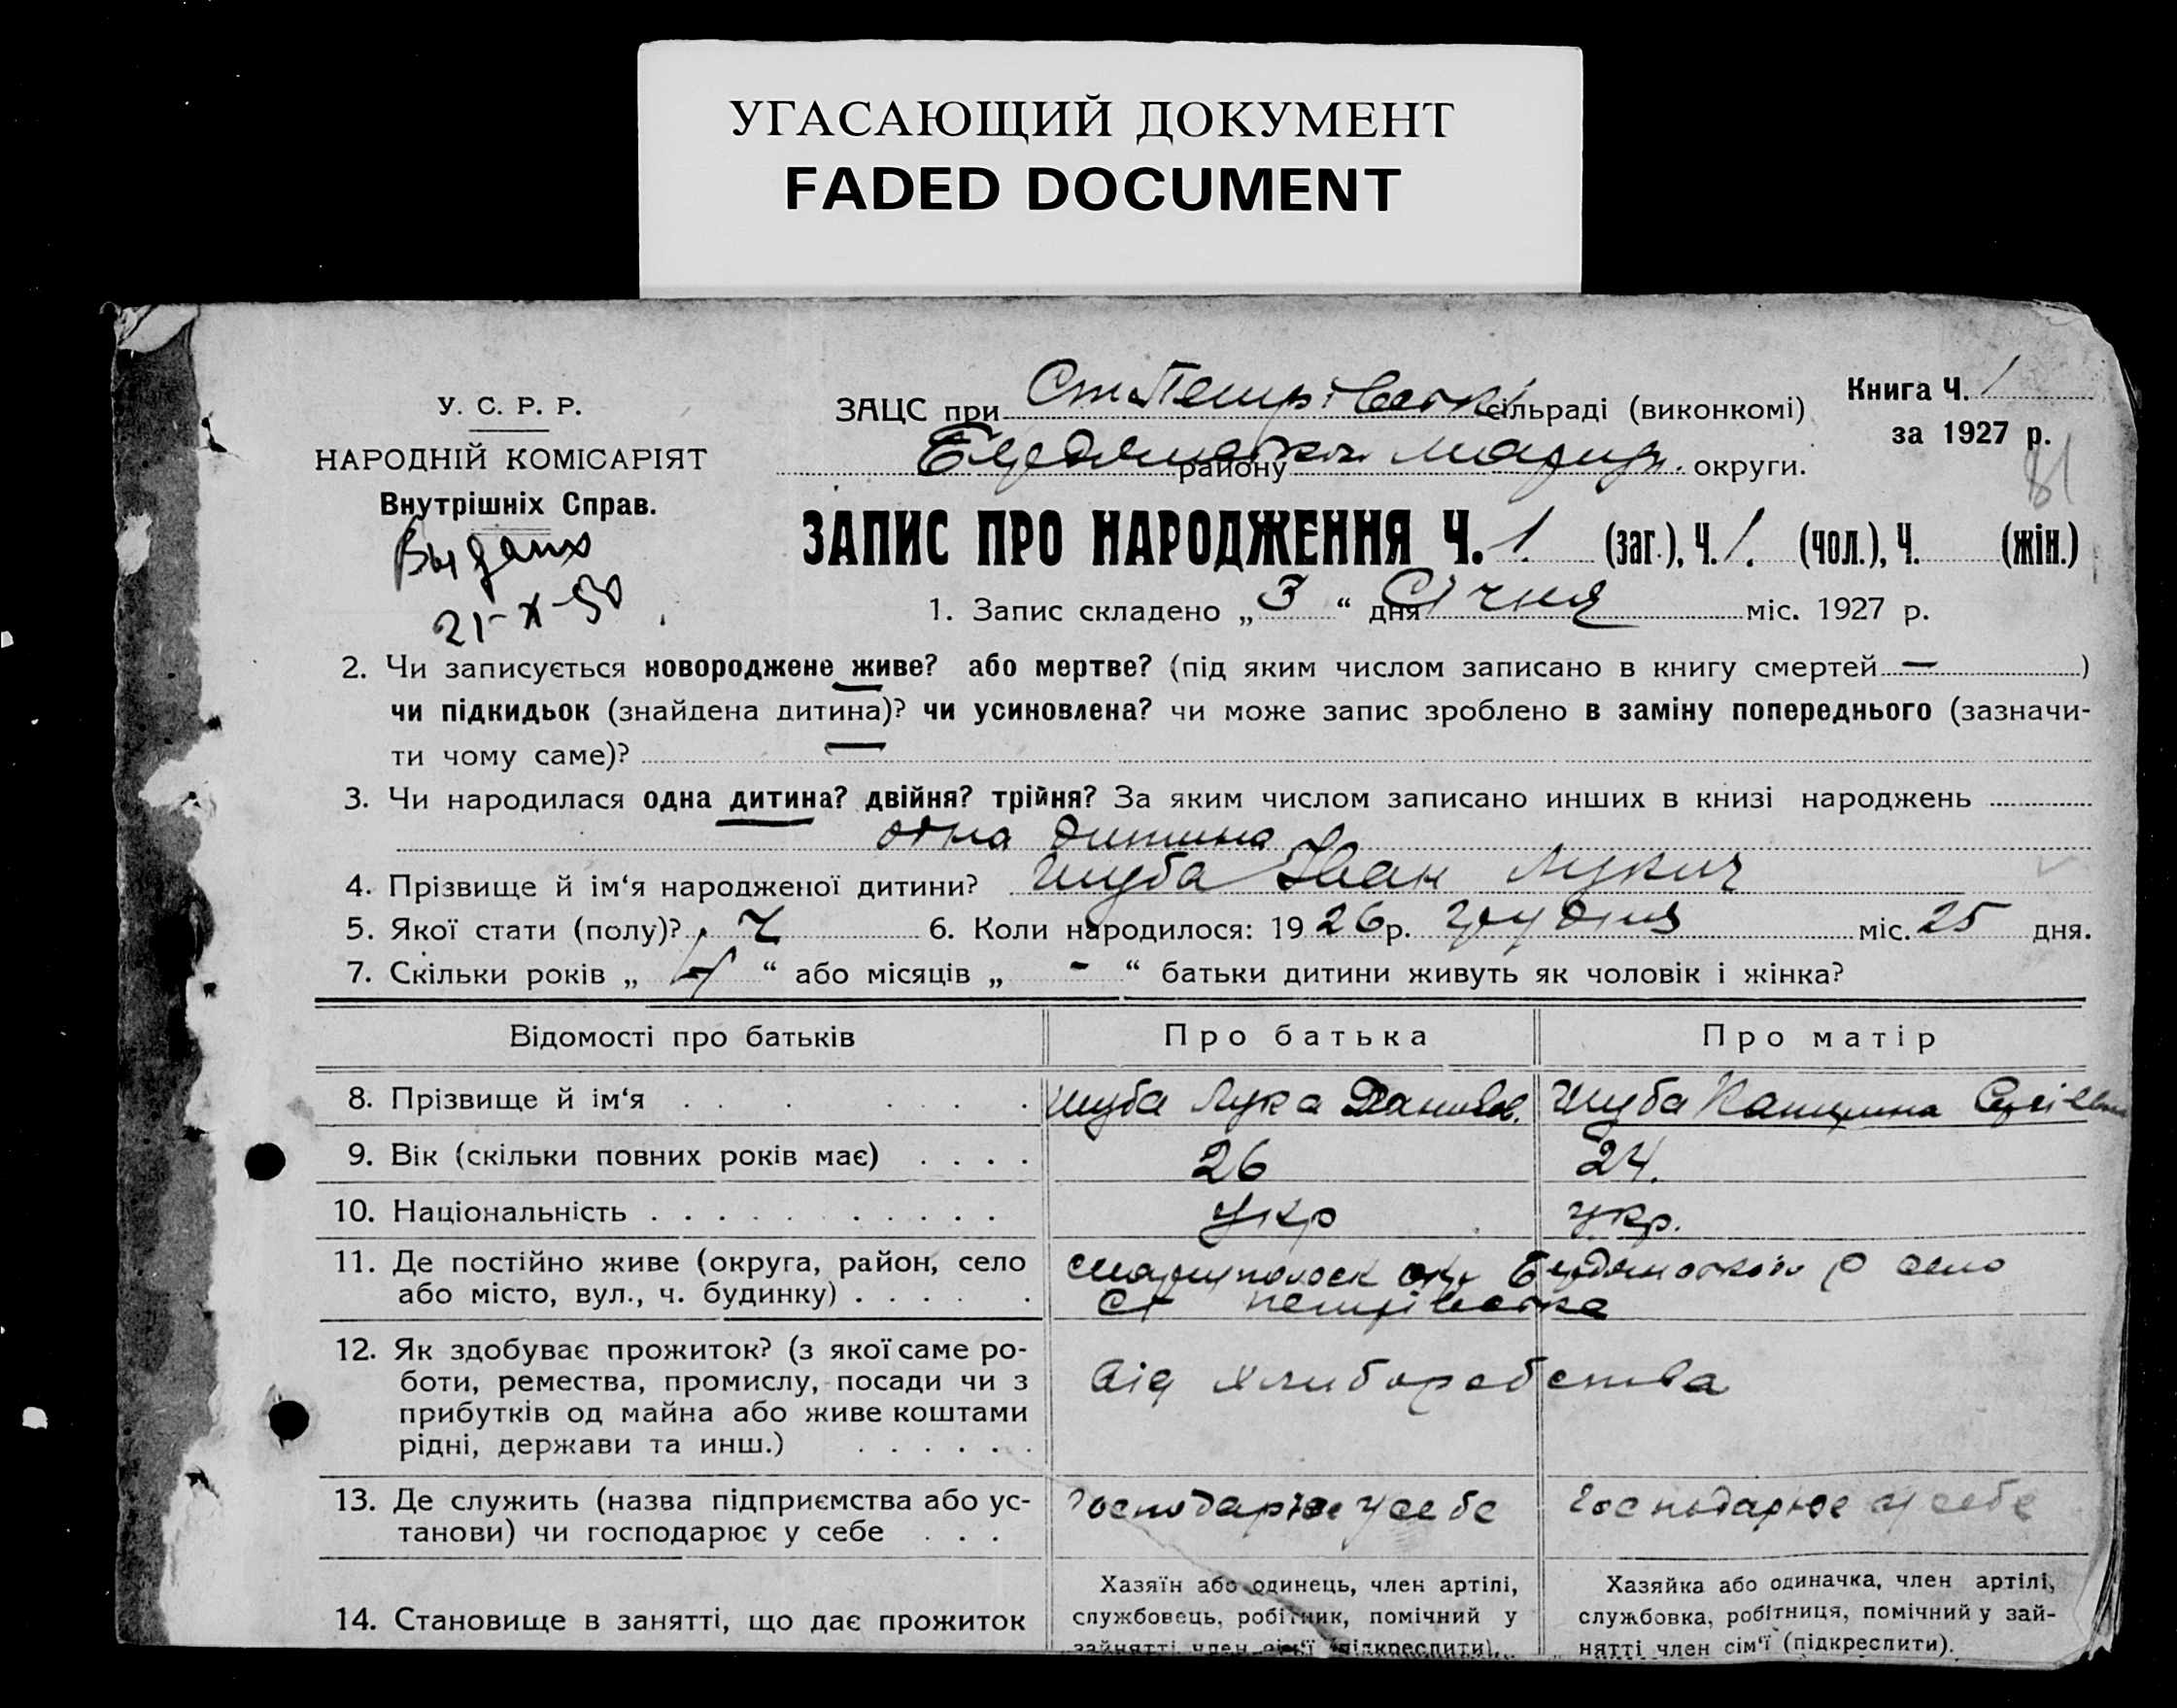 УГАСАЮЩИЙ ДОКУМЕНТ
FADED DOCUMENT
У. С. Р. Р.
НАРОДНІЙ КОМІСАРІЯТ
Внутрішніх Справ.
21-X-50
ЗАЦС при Ст-Петрівській сільраді (виконкомі)
Книга Ч. 1
за 1927 р.
Бердянськ району Маріуп. округи.
81
ЗАПИС ПРО НАРОДЖЕННЯ Ч. 1 (заг.), Ч. 1. (чол.), Ч. (жін.)
1. Запис складено „ 3 “ дня Січня міс. 1927 р.
2. Чи записується новороджене живе? або мертве? (під яким числом записано в книгу смертей — )
чи підкидьок (знайдена дитина)? чи усиновлена? чи може запис зроблено в заміну попереднього (зазначи-
ти чому саме)? —
3. Чи народилася одна дитина? двійня? трійня? За яким числом записано инших в книзі народжень
одна дитина
4. Прізвище й ім‘я народженої дитини? Шуба Іван Лукич
5. Якої стати (полу)? ч 6. Коли народилося: 1926 р. грудня міс. 25 дня.
7. Скільки років „ “ або місяців „ - “ батьки дитини живуть як чоловік і жінка?
Відомості про батьків Про батька Про матір
8. Прізвище й ім‘я Шуба Лука Данилов. Шуба Катерина Сергіївна
9. Вік (скільки повних років має) 26 24.
10. Національність укр укр.
11. Де постійно живе (округа, район, село
або місто, вул., ч. будинку)
Маріупольск окр Бердянський р село
Ст петрівська
12. Як здобуває прожиток? (з якої саме ро-
боти, ремества, промислу, посади чи з
прибутків од майна або живе коштами
рідні, держави та инш.)
від хліборобства
13. Де служить (назва підприємства або ус-
танови) чи господарює у себе
господарює у себе господарює у себе
14. Становище в занятті, що дає прожиток
Хазяїн або одинець, член артілі,
службовець, робітник, помічний у
зайнятті член сім‘ї (підкреслити).
Хазяйка або одиначка, член артілі,
службовка, робітниця, помічний у зай-
нятті член сім‘ї (підкреслити).